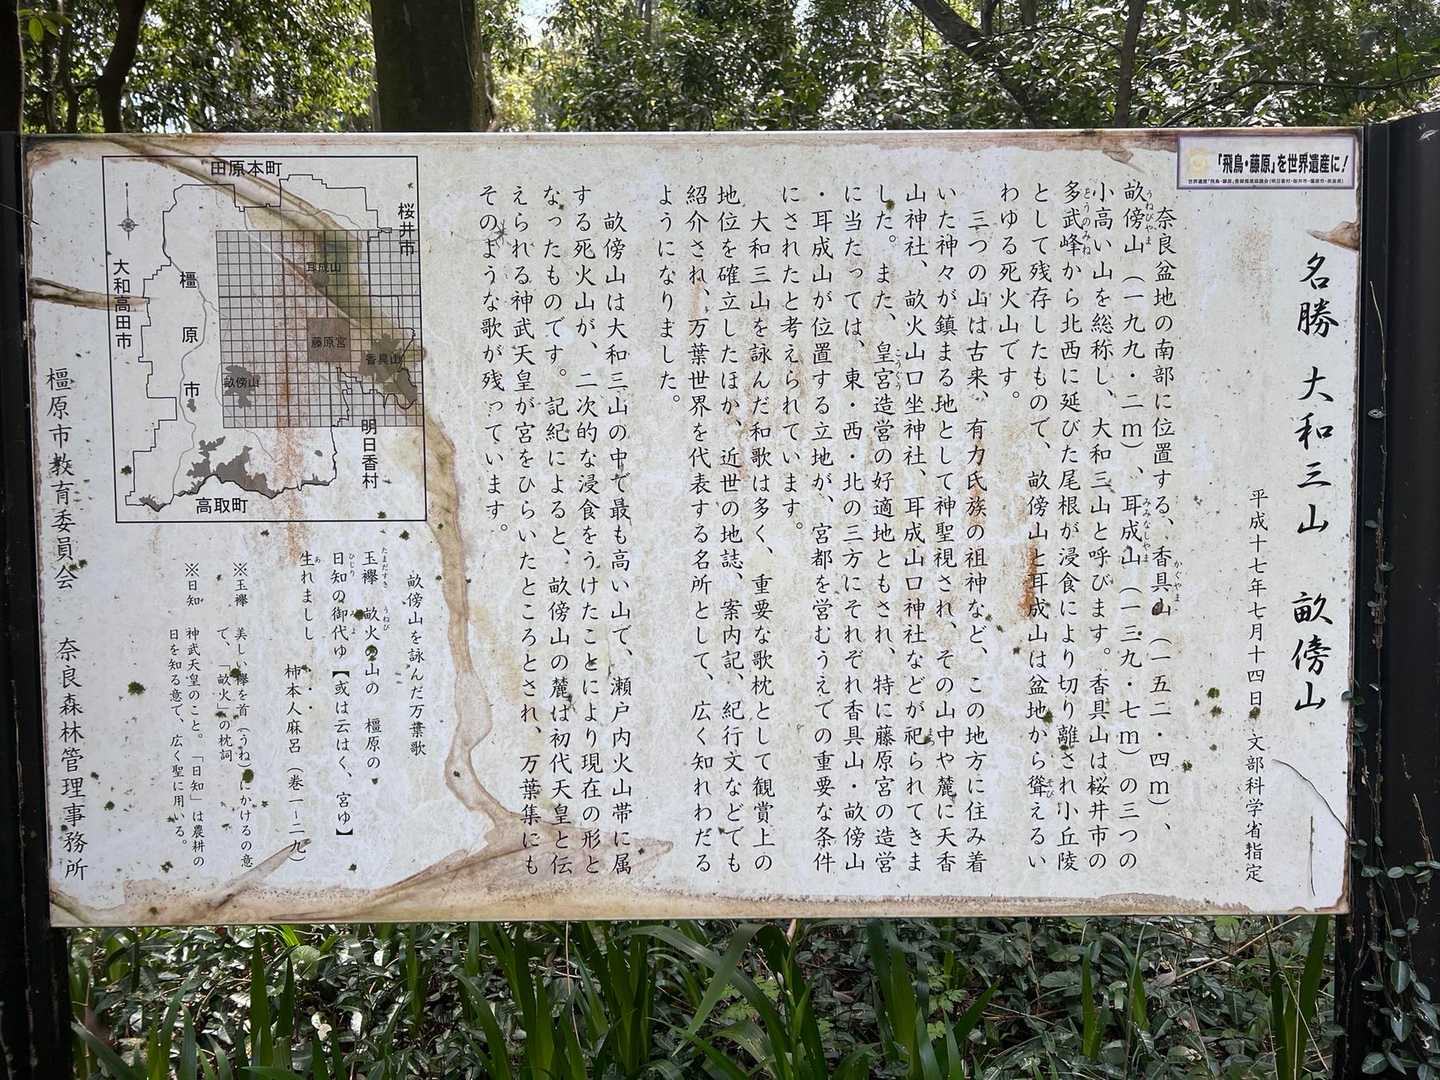 「飛鳥・藤原」を世界遺産に!
名勝 大和三山 畝傍山
平成十七年七月十四日 文部科学省指定
奈良盆地の南部に位置する、香具山（一五二・四ｍ）、
畝傍山（一九九・二ｍ）、耳成山（一三九・七ｍ）の三つの
小高い山を総称し、大和三山と呼びます。香具山は桜井市の
多武峰から北西に延びた尾根が浸食により切り離され小丘陵
として残存したもので、畝傍山と耳成山は盆地から聳えるい
わゆる死火山です。
三つの山は古来、有力氏族の祖神など、この地方に住み着
いた神々が鎮まる地として神聖視され、その山中や麓に天香
山神社、畝火山口坐神社、耳成山口神社などが祀られてきま
した。また、皇宮造営の好適地ともされ、特に藤原宮の造営
に当たっては、東・西・北の三方にそれぞれ香具山・畝傍山
・耳成山が位置する立地が、宮都を営むうえでの重要な条件
にされたと考えられています。
大和三山を詠んだ和歌は多く、重要な歌枕として観賞上の
地位を確立したほか、近世の地誌、案内記、紀行文などでも
紹介され、万葉世界を代表する名所として、広く知れわだる
ようになりました。
畝傍山は大和三山の中で最も高い山で、瀬戸内火山帯に属
する死火山が、二次的な浸食をうけたことにより現在の形と
なったものです。記紀によると、畝傍山の麓は初代天皇と伝
えられる神武天皇が宮をひらいたところとされ、万葉集にも
そのような歌が残っています。
畝傍山を詠んだ万葉歌
玉襷 畝火の山の 橿原の
日知の御代ゆ【或は云はく、宮ゆ】
生れましし・・・
柿本人麻呂（巻一ー二九）
※玉襷 美しい襷を首（うね）にかけるの意
で、「畝火」の枕詞
※日知 神武天皇のこと。「日知」は農耕の
日を知る意で、広く聖に用いる。
田原本町
桜井市
大和高田市
橿原市
耳成山
藤原宮
香具山
畝傍山
明日香村
高取町
橿原市教育委員会 奈良森林管理事務所